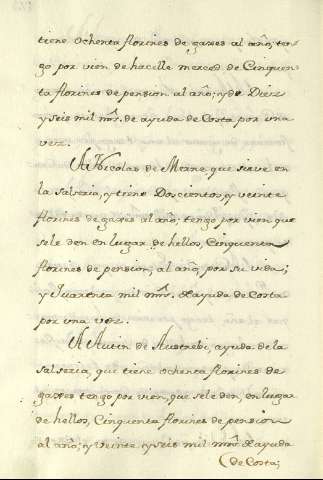 tiene ochenta florines de gaxes al año; ten-
go por vien de hacelle merced de Cinquen-
ta florines de pension al año; y de Diez
y seis mil mrs. de ayuda de Costa por una
vez.
A Nicolas de Mrane que sieve en
la Salseria, y tiene Doscientos, y veinte
florines de gaxes al año; tengo por vien, que
se le den en lugar de hellos, Cinquenta
florines de pension, al año, por su vida;
y Quarenta mil mrs. de ayuda de Costa
por una vez.
A Autin de Austrebi, ayuda de la
Salseria, que tiene ochenta florines de
gaxes tengo por vien, que se le den, en lugar
de hellos, Cinquenta florines de pension
al año; y veinte y seis mil mrs. de ayuda
de Costa;